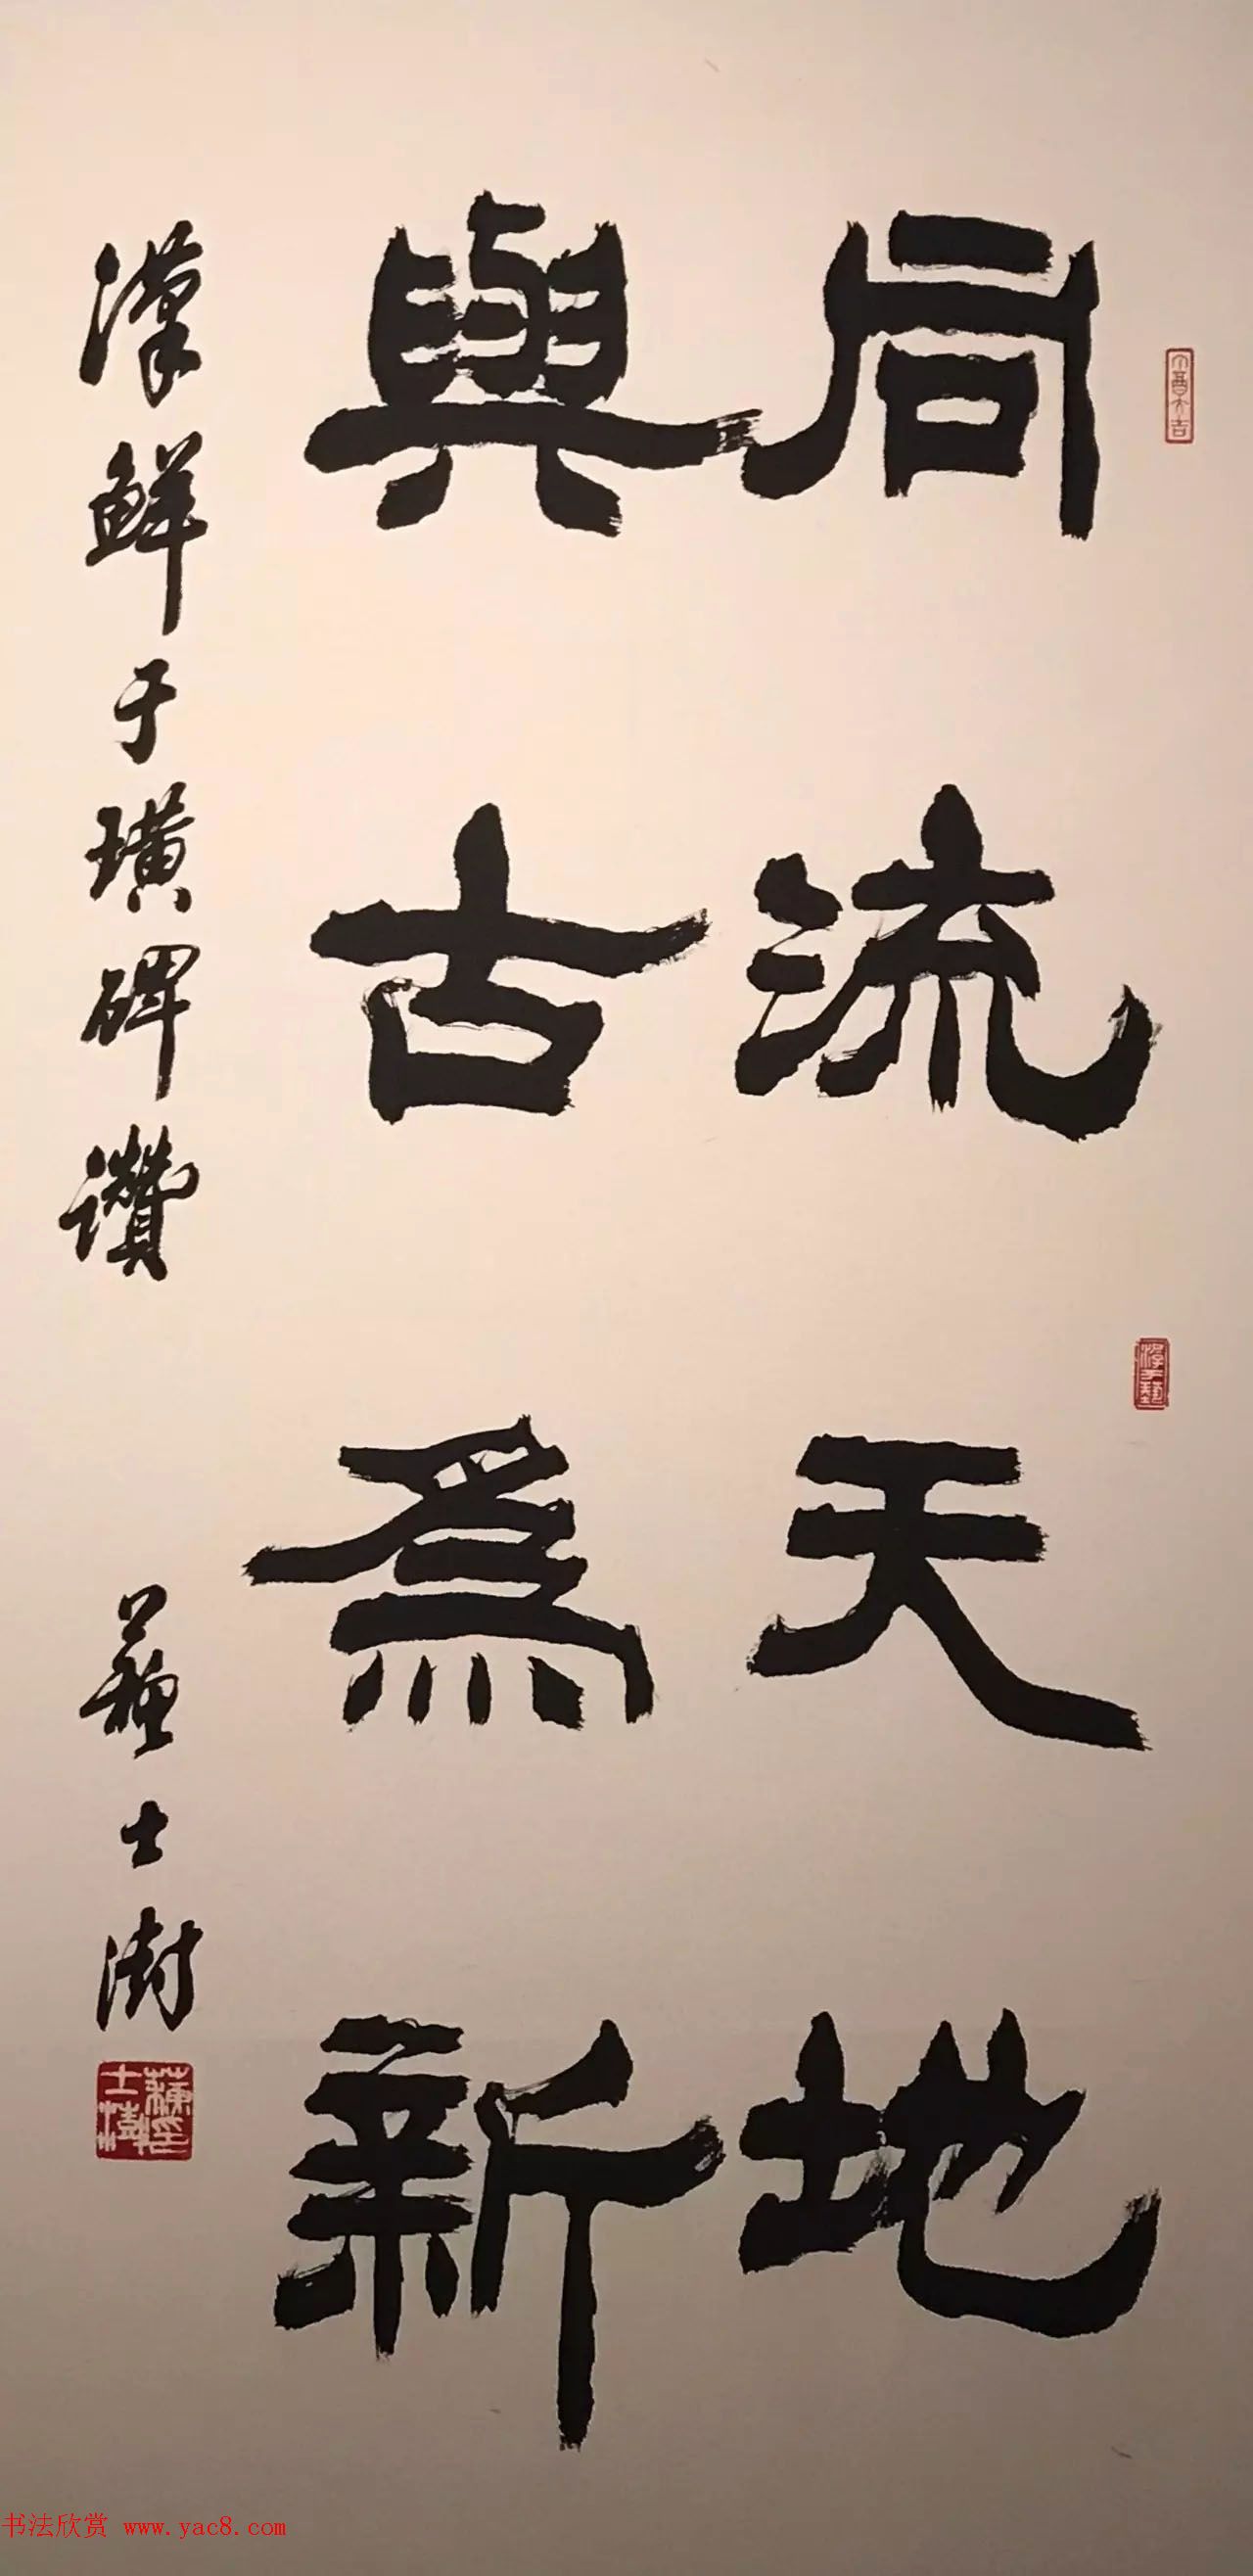 同流天地
與古爲新
漢鮮于璜碑讚　蘇士澍
蘇士澍印
书法欣赏 www.yac8.com